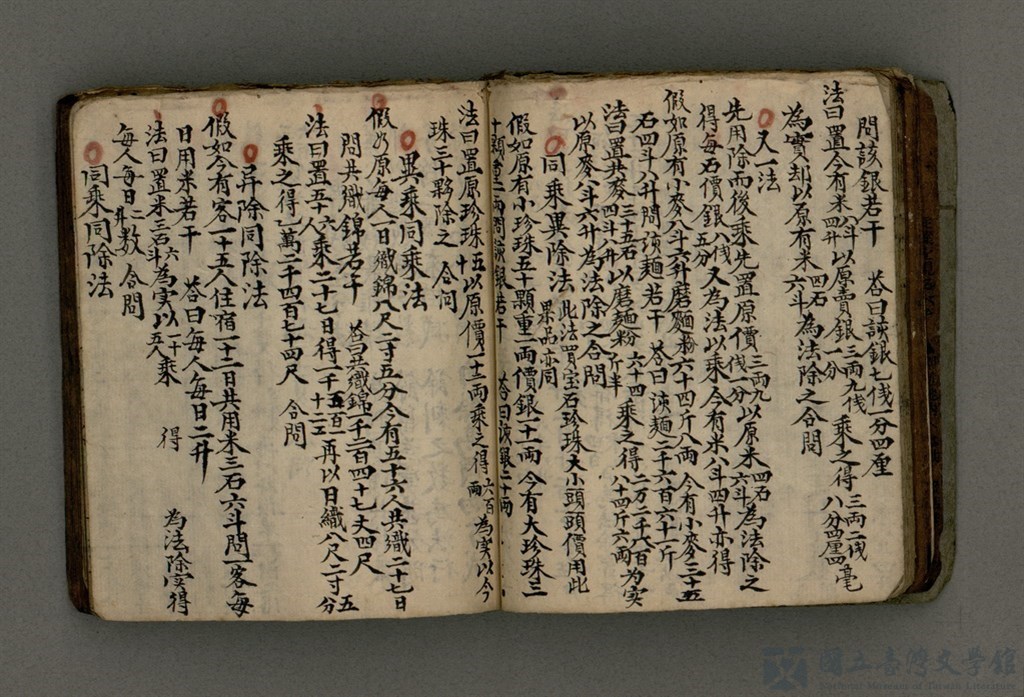 問該銀若干　答曰該銀七伐一分四厘
法曰置今有米八斗四升以原賣銀三兩九伐一分乘之得三兩二伐八分四厘四毫
為實却以原有米四石六斗為法除之合問
又一法
先用除而後乘先置原價三兩九伐一分以原米四石六斗為法除之
得每石價銀八伐五分又為法以乘今有米八斗四升亦得
假如原有小麥八斗六升磨麵粉六十四斤八兩今有小麥三十五
石四斗八升問該麵若干　答曰該麵二千六百六十一斤
法曰置共麥三十五石四斗八升以磨麵粉六十四斤半乘之得二万二千八百八十四斤六兩為实
以原麥八斗六升為法除之合問
同乘異除法　此法買宝石珍珠大小頭頭價用此果品亦同
假如原有小珍珠五十顆重一兩價銀一十二兩今有大珍珠三
十顆重一兩問該銀若干　答曰該銀二十兩
法曰置原珍珠五十以原價一十二兩乘之得六百兩為实以今
珠三十夥除之　合问
異乘同乘法
假如原每人一日織錦八尺二寸五分今有五十六人共織二十七日
問共織錦若干　答曰共織錦一千二百四十七丈四尺
法曰置五十六人乘二十七日得一千五百一十二再以日織八尺二寸五分
乘之得乙萬二千四百七十四尺　合問
异除同除法
假如今有客一十五人住宿一十二日共用米三石六斗問一客每
日用米若干　答曰每人每日二升
法曰置米三石六斗為实以一十五人乘　得　為法除实得
每人每日二升数　合問
同乘同除法
國立臺灣文學館